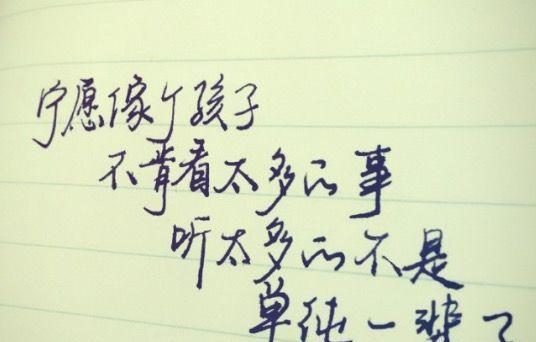 宁愿像个孩子
不肯看太多的事
听太多的不是
单纯一辈子